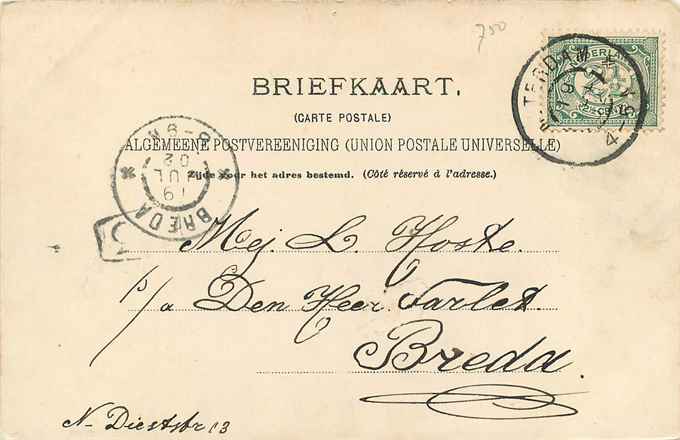 750
NEDERLAND
BRIEFKAART.
(CARTE POSTALE)
ALGEMEENE POSTVEREENIGING (UNION POSTALE UNIVERSELLE)
Zijde voor het adres bestemd. (Côté réservé à l'adresse.)
BREDA
19 JUL 02
8-9N
Mej. L. Hoste.
p/a Den Heer Tarlet.
Breda.
N- Dieststr 13